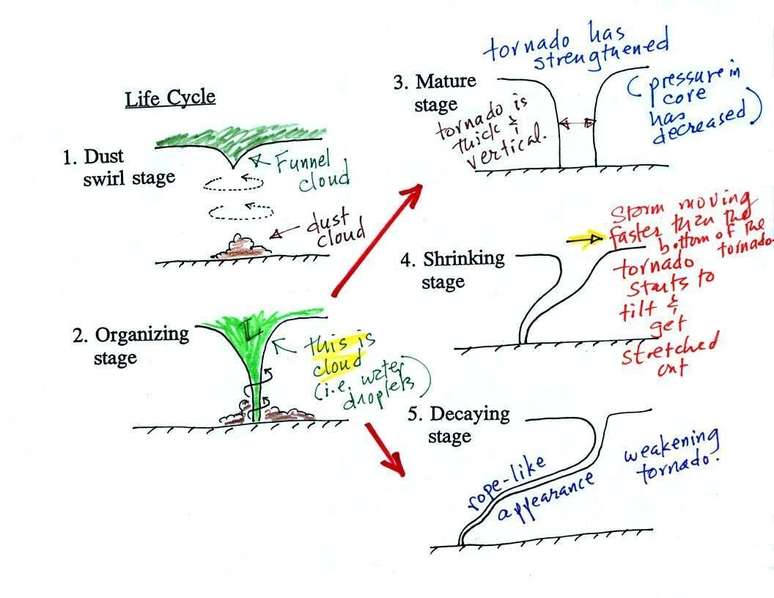 Life Cycle
1. Dust
swirl stage
Funnel
cloud
dust
cloud
2. Organizing
stage
L
this is
cloud
(i.e. water
droplets)
tornado has
strengthened
3. Mature
stage
tornado is
thick &
vertical.
(pressure in
core
has
decreased)
4. Shrinking
stage
Storm moving
faster then the
bottom of the
tornado tornado
starts to
tilt &
get
stretched
out
5. Decaying
stage
rope-like
appearance
weakening
tornado.